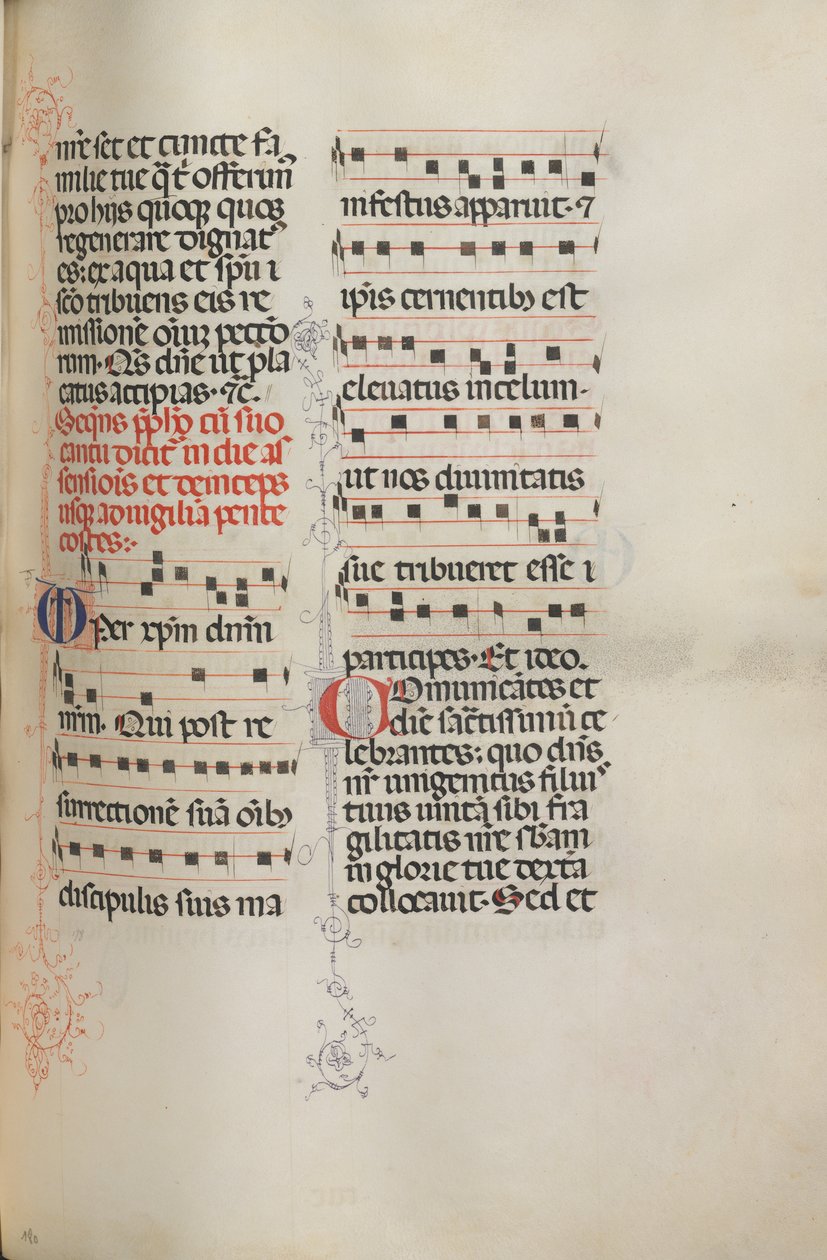 nr̄e set et cuncte fa
milie tue q̄s t̄ offerim⁹
pro hijs quoqꝫ quos
regenerare dignat⁹
es: ex aqua et sp̄u i
sc̄o tribuens eis re
missionē oīuꝫ pecc̄o
rum. Q̄s dn̄e ut pla
catus accipias. ⁊c̄.
Seqn̄s p̄phō cū suo
cantu dicit᷑ in die as
sensiōis et deinceps
usqꝫ ad vigiliā pente
costes:
Per xp̄m dn̄m
nr̄m. Qui post re
surrectionē suā oīb⁹
discipulis suis ma
nifestus apparuit. ⁊
ip̄is cernentib⁹ est
eleuatus in celum.
ut nos diuinitatis
sue tribueret esse i
participes. Et ideo.
Comunicātes et
diē sacr̄tissimū ce
lebrantes: quo dn̄s
nr̄ unigenitus filius
tuus unitā sibi fra
gilitatis nr̄e sb̄am
in glorie tue dext̄a
collocauit. Sed et
190